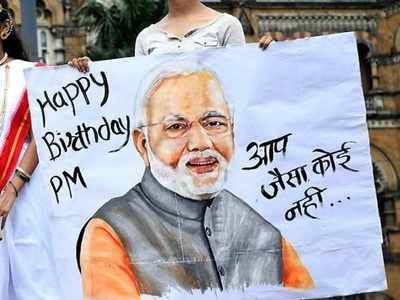 Happy
Birthday
PM
आप
जैसा कोई
नही...